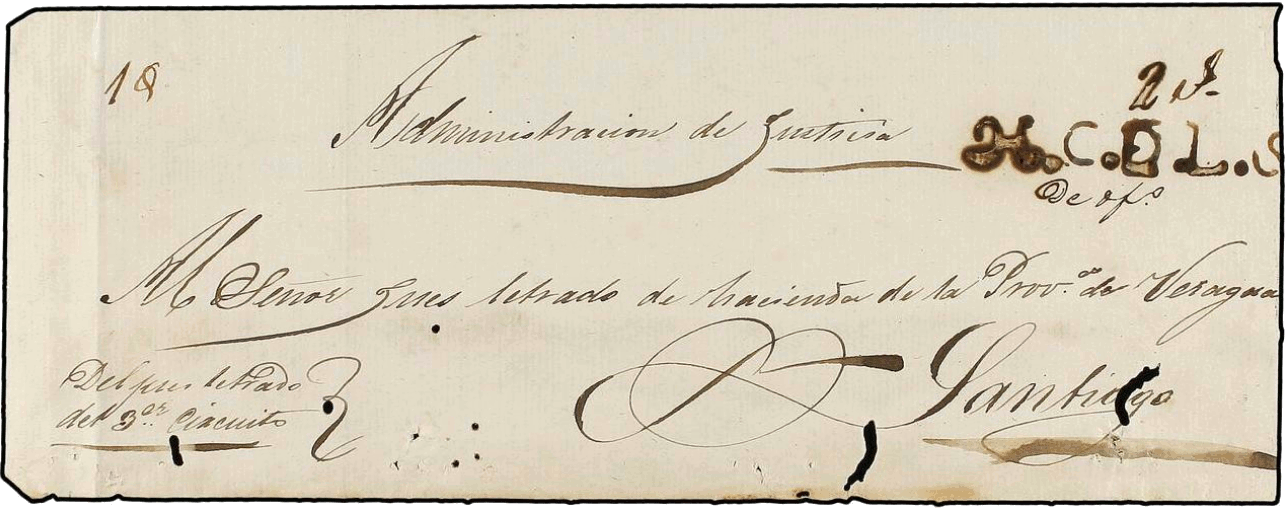 18
2 
Administracion de Justicia
H.C.D.L.S
De ofo.
Al Señor Jues letrado de hacienda de la Prov.a de Veragua
Santiago
Del jues letrado
del 3er. Circuito